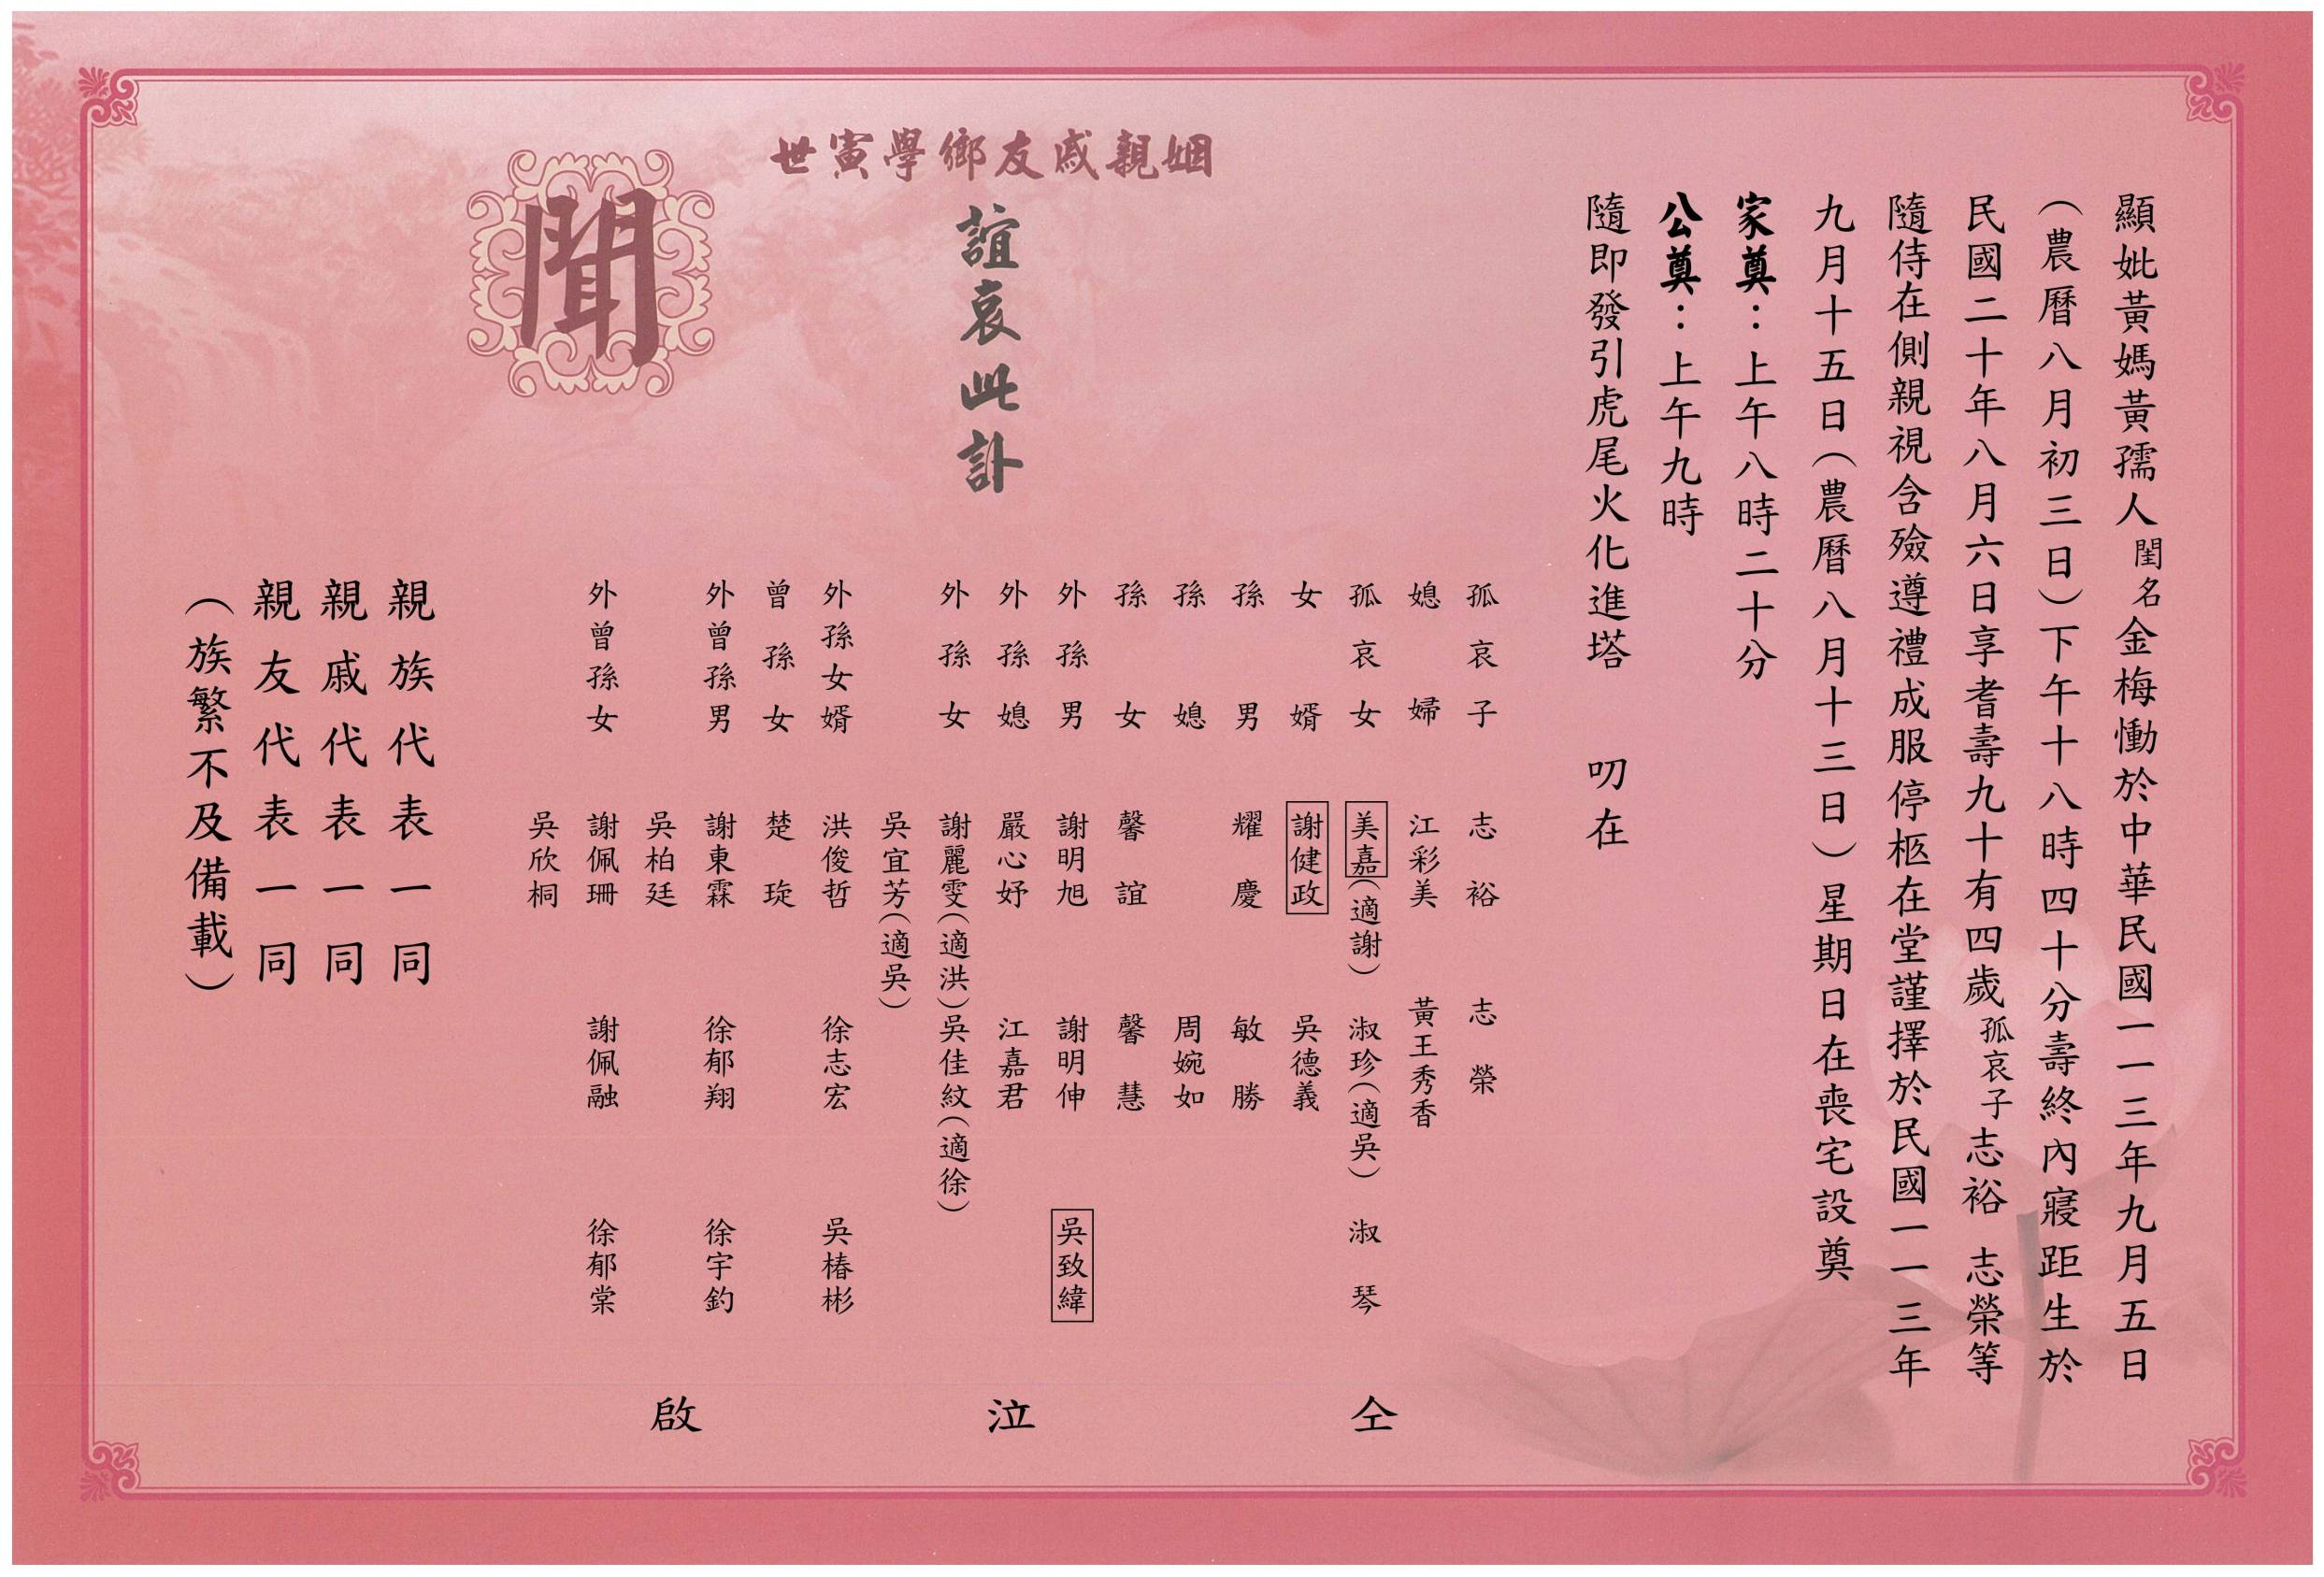 顯妣黃媽黃孺人閨名金梅慟於中華民國一一三年九月五日
(農曆八月初三日)下午十八時四十八分壽終內寢距生於
民國二十年八月六日享耆壽九十有四歲孤哀子志裕 志榮等
隨侍在側親視含殮遵禮成服停柩在堂謹擇於民國一一三年
九月十五日(農曆八月十三日)星期日在喪宅設奠
家奠：上午八時二十分
公奠：上午九時
隨即發引虎尾火化進塔 叨在
姻親戚友鄉學寅世
誼哀此訃
聞
孤哀子 志裕 志榮
媳婦 江彩美 黃王秀香
孤哀女 美嘉(適謝) 淑珍(適吳) 淑琴
女婿 謝健政 吳德義
孫男 耀慶 敏勝
孫媳 周婉如
孫女 馨誼 馨慧
外孫男 謝明旭 謝明伸 吳致緯
外孫媳 嚴心妤 江嘉君
外孫女 謝麗雯(適洪) 吳佳紋(適徐)
吳宜芳(適吳)
外孫女婿 洪俊哲 徐志宏 吳椿彬
曾孫女 楚琁
外曾孫男 謝東霖 徐郁翔 徐宇釣
吳柏廷
外曾孫女 謝佩珊 謝佩融 徐郁棠
吳欣桐
仝泣啟
親族代表一同
親戚代表一同
親友代表一同
(族繁不及備載)